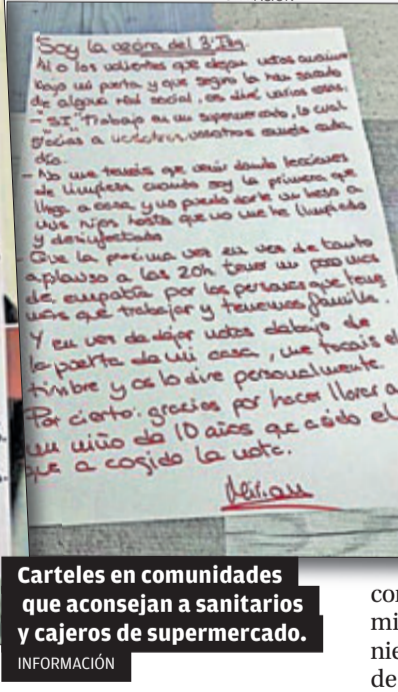 Soy la vecina del 3º Izq.
Al o los valientes que dejan notas anonimas
bajo mi puerta y que seguro la han sacado
de alguna red social, os diré varias cosas.
- "SI" Trabajo en un supermercado, lo cual
gracias a nosotros vosotros comeis cada
día.
- No me teneis que venir dando lecciones
de limpieza cuando soy la primera que
llega a casa y no puedo darle un beso a
mis hijos hasta que no me he limpiado
y desinfectado
- Que la proxima vez en ves de tanto
aplauso a las 20h tener un poco mas
de empatia por las personas que tene
mos que trabajar y tenemos familia.
Y en ves de dejar notas debajo de
la puerta de mi casa, me tocais el
timbre y os lo dire personalmente.
Por cierto: gracias por hacer llorar a
un niño de 10 años que a sido el
que a cogido la nota.
Mirian
Carteles en comunidades
que aconsejan a sanitarios
y cajeros de supermercado.
INFORMACIÓN